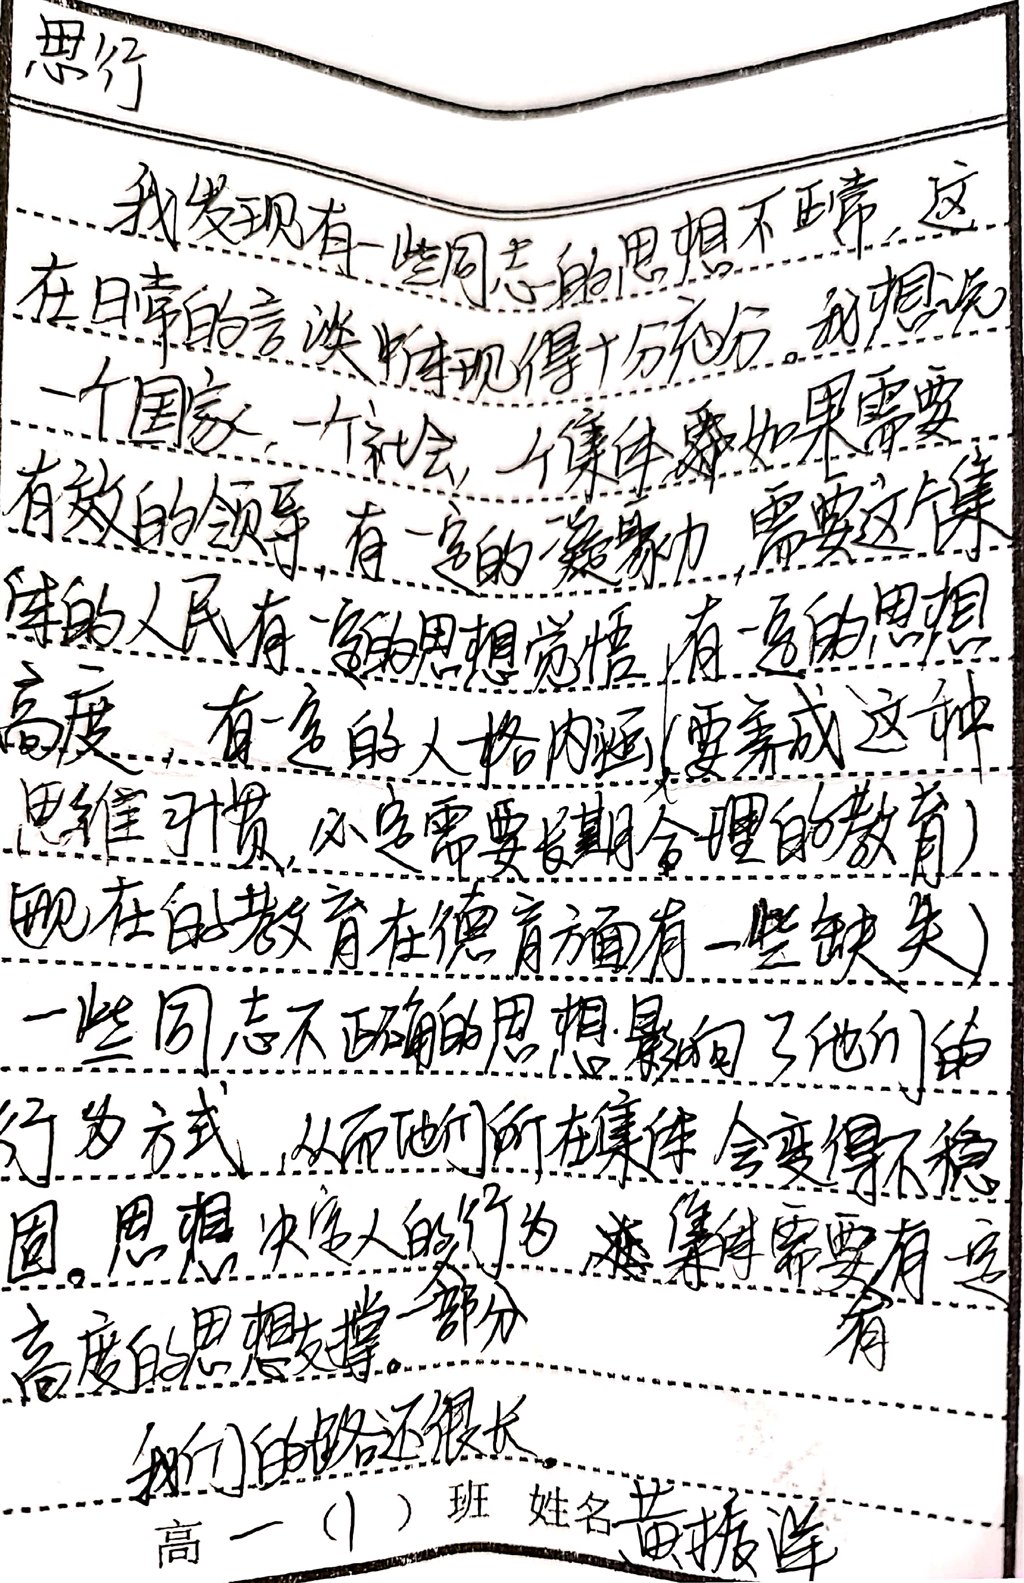 思行
我发现有一些同志的思想不正常,这
在日常的言谈中体现得十分充分。我想说
一个国家,一个社会,一个集体如果需要
有效的领导,有一定的凝聚力,需要这个集
体的人民有一定的思想觉悟,有一定的思想
高度,有一定的人格内涵(要养成这种
思维习惯,必定需要长期合理的教育)
(现在的教育在德育方面有一些缺失)
一些同志不正确的思想影响了他们的
行为方式,从而他们所在集体会变得不稳
固。思想决定人的行为,集体需要有一定
一部分 有
高度的思想支撑。
我们的路还很长。
高一(1)班 姓名黄振洋